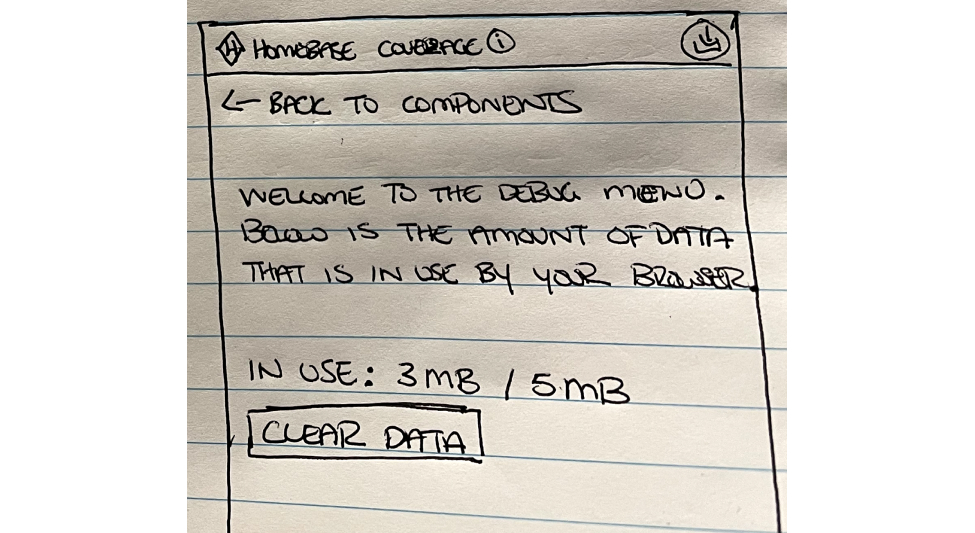 H HOMEBASE COVERAGE i
← BACK TO COMPONENTS
WELCOME TO THE DEBUG MENU.
BELOW IS THE AMOUNT OF DATA
THAT IS IN USE BY YOUR BROWSER.
IN USE: 3MB / 5MB
CLEAR DATA